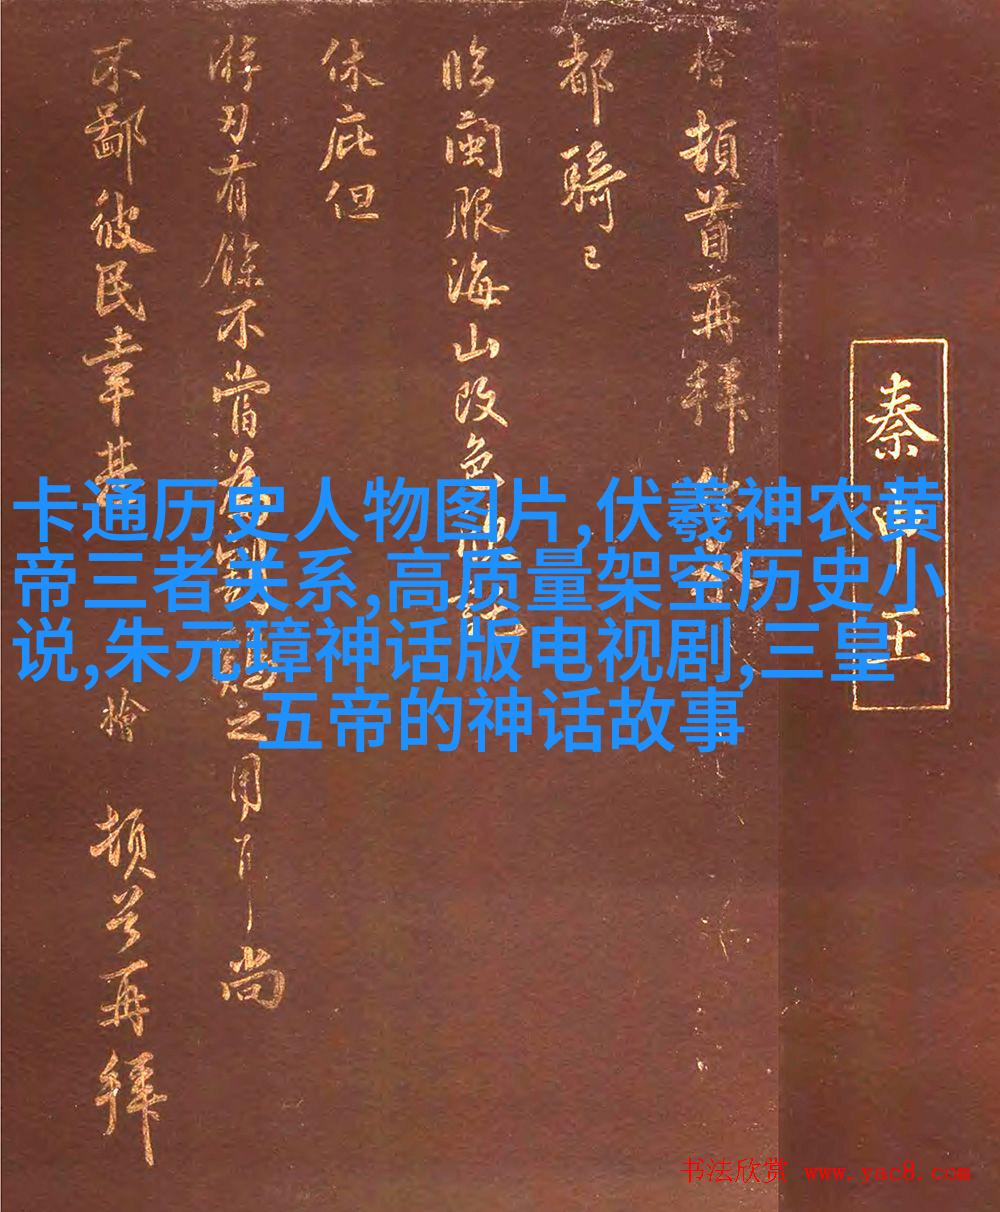 秦申王
檜頓首再拜
都騎已
臨閩服海山改色
休庇但
游刃有餘不嘗為
之用
尚
不鄙彼民幸甚
檜
頓首再拜
卡通历史人物图片,伏羲神农黄
帝三者关系,高质量架空历史小
说,朱元璋神话版电视剧,三皇
五帝的神话故事
书法欣赏 www.yac8.com